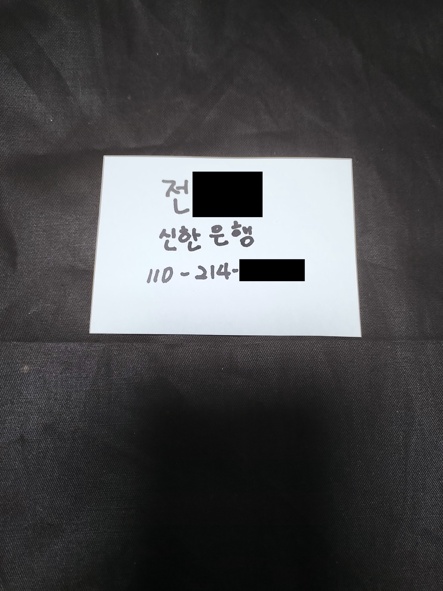 전
신한은행
110-214-